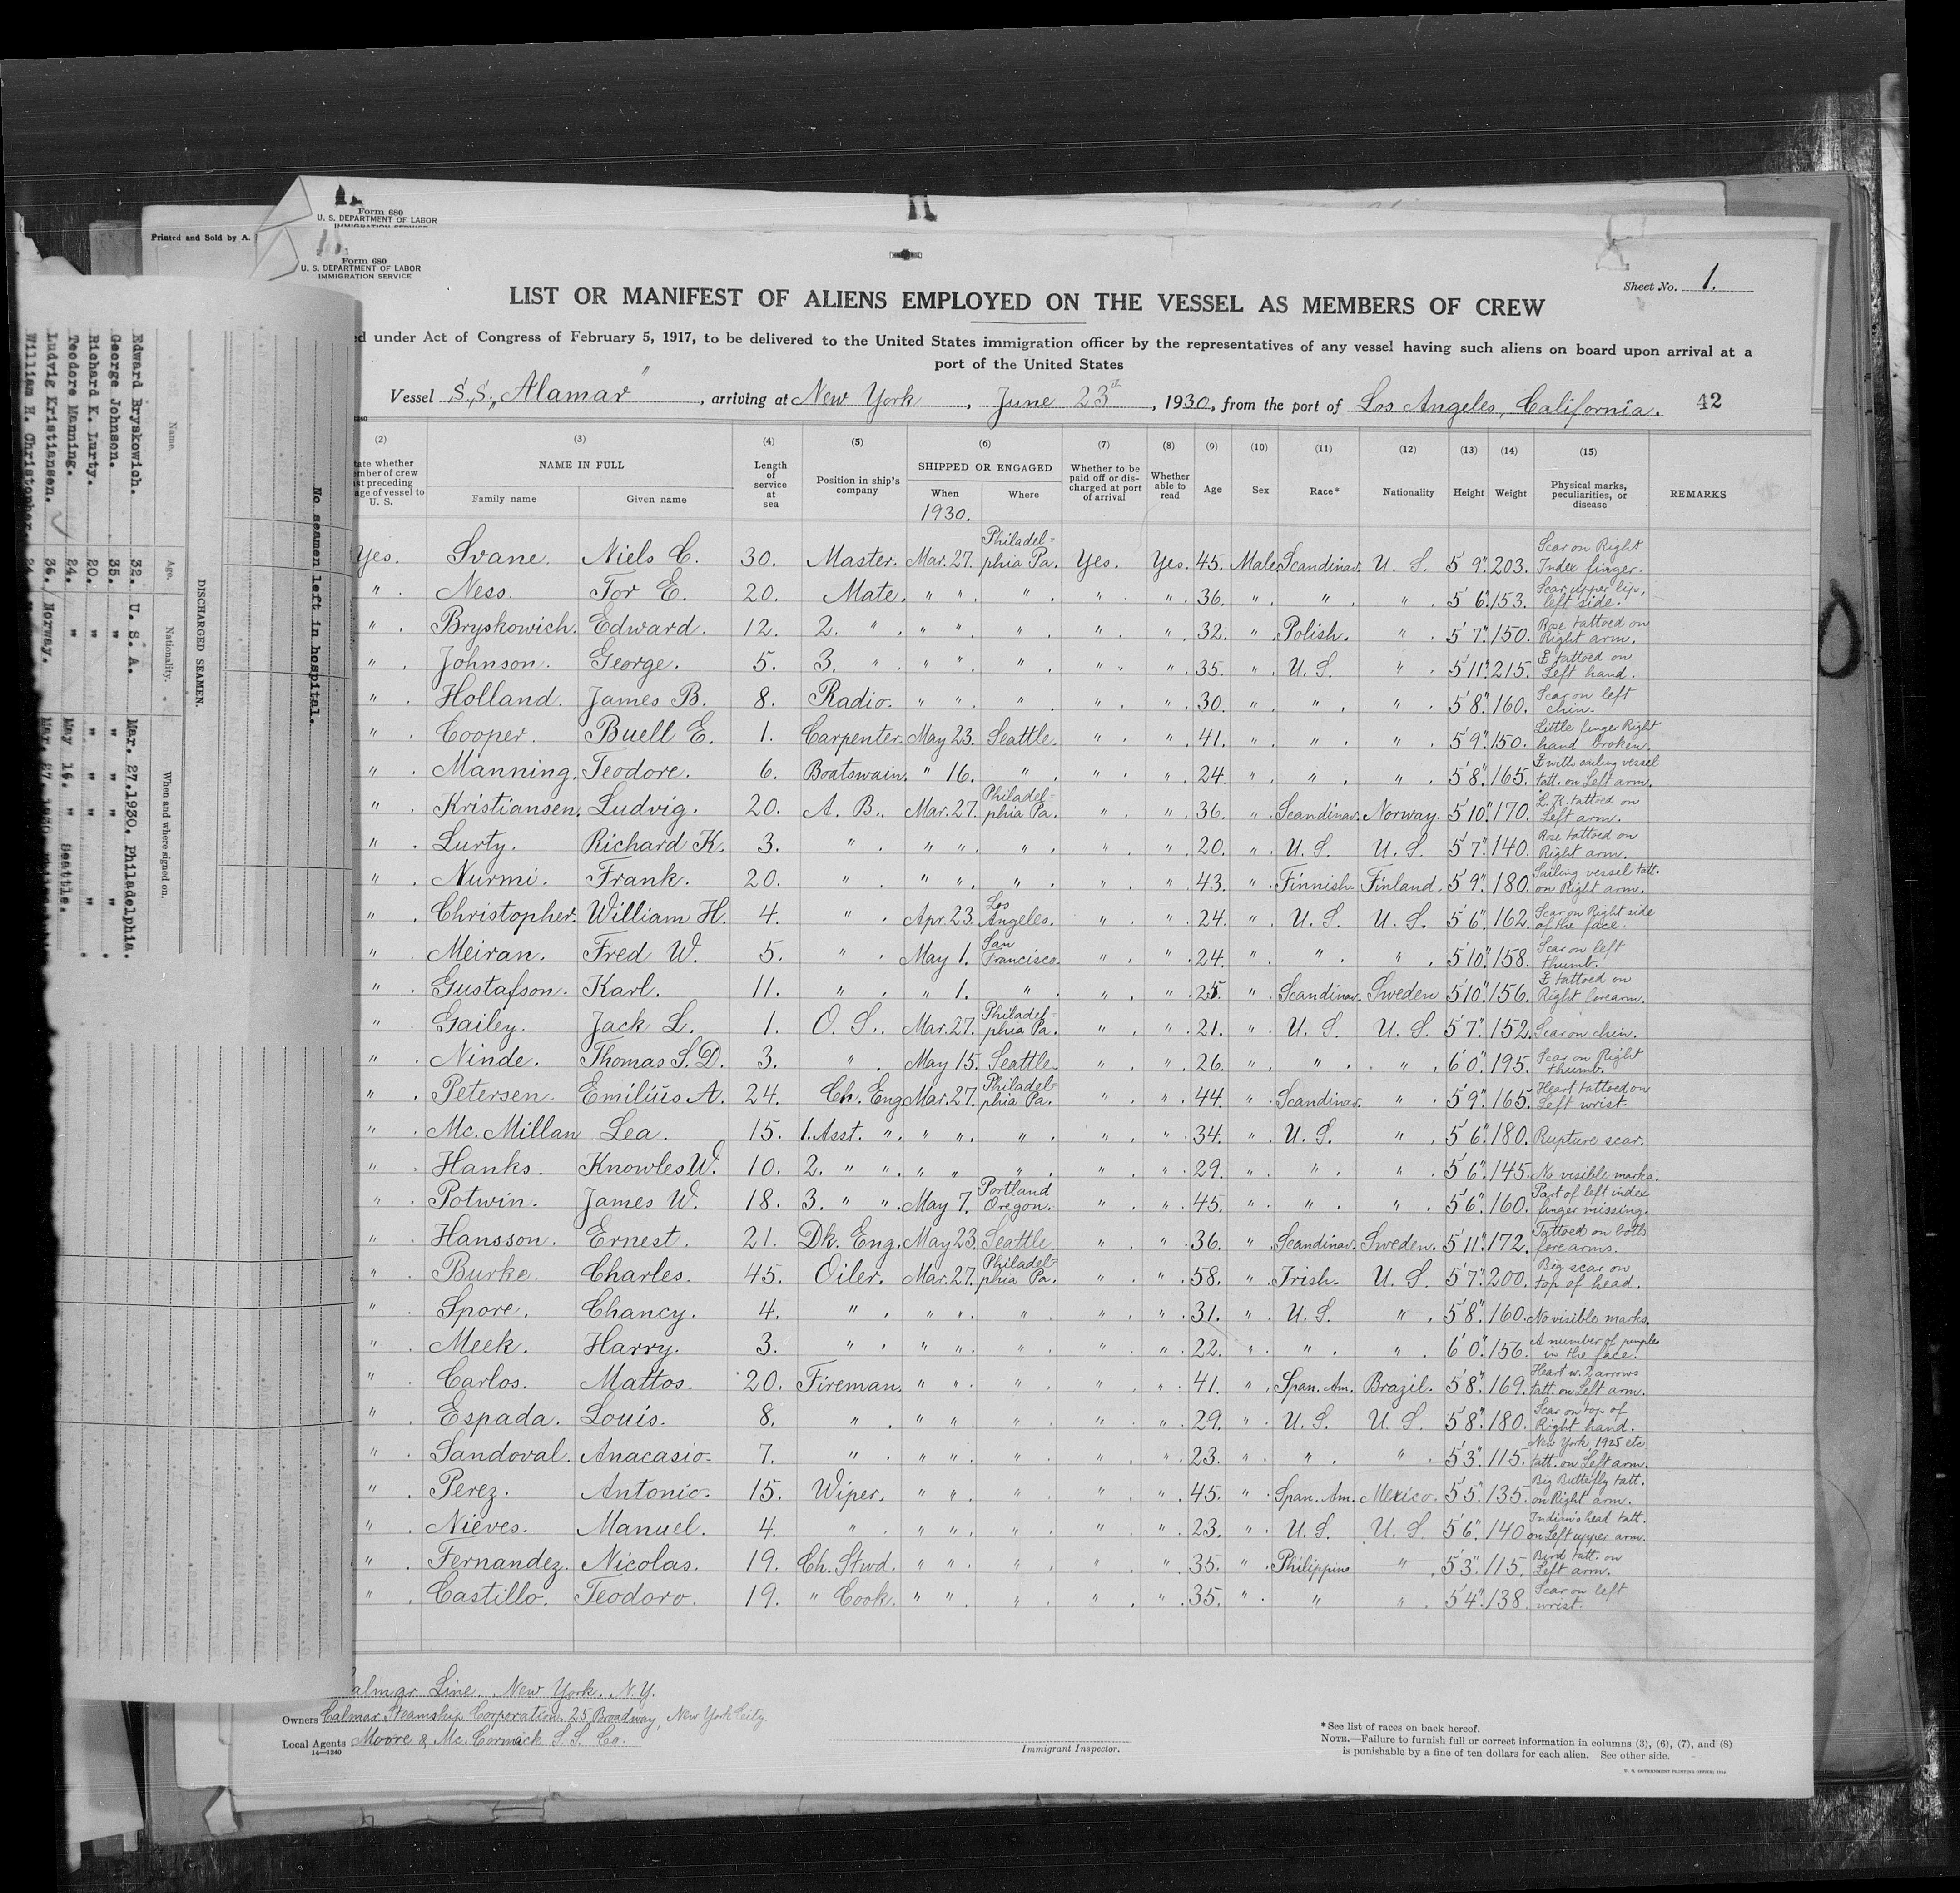 Form 680
U. S. DEPARTMENT OF LABOR
IMMIGRATION SERVICE
Printed and Sold by A.
Form 680
U. S. DEPARTMENT OF LABOR
IMMIGRATION SERVICE
Sheet No. 1.
LIST OR MANIFEST OF ALIENS EMPLOYED ON THE VESSEL AS MEMBERS OF CREW
under Act of Congress of February 5, 1917, to be delivered to the United States immigration officer by the representatives of any vessel having such aliens on board upon arrival at a
port of the United States
Vessel S.S. „Alamar", arriving at New York, June 23th, 1930, from the port of Los Angeles, California. 42
(2) (3) (4) (5) (6) (7) (8) (9) (10) (11) (12) (13) (14) (15)
NAME IN FULL Length of service at sea Position in ship's company SHIPPED OR ENGAGED Whether to be paid off or discharged at port of arrival Whether able to read Age Sex Race* Nationality Height Weight Physical marks, peculiarities, or disease REMARKS
Family name Given name When Where
1930.
Yes. Svane. Niels C. 30. Master. Mar. 27. Philadel=phia Pa. Yes. Yes. 45. Male Scandinav. U. S. 5' 9". 203. Scar on Right Index finger.
" . Ness. Tor E. 20. Mate. " " . " . " . " . 36. " . " . " . 5' 6". 153. Scar upper lip, left side.
" . Bryskowich. Edward. 12. 2. " . " " . " . " . " . 32. " . Polish. " . 5' 7". 150. Rose tattoed on Right arm.
" . Johnson. George. 5. 3. " . " " . " . " . " . 35. " . U. S. " . 5' 11". 215. tattoed on Left hand.
" . Holland. James B. 8. Radio. " " . " . " . " . 30. " . " . " . 5' 8". 160. Scar on left chin.
" . Cooper. Buell E. 1. Carpenter. May 23. Seattle. " . " . 41. " . " . " . 5' 9". 150. Little finger Right hand broken.
" . Manning. Teodore. 6. Boatswain. " 16. " . " . " . 24. " . " . " . 5' 8". 165. with sailing vessel tatt. on Left arm.
" . Kristiansen. Ludvig. 20. A. B. Mar. 27. Philadel=phia Pa. " . " . 36. " . Scandinav. Norway. 5' 10". 170. L. K. tattoed on Left arm.
" . Lurty. Richard K. 3. " . " " . " . " . " . 20. " . U. S. U. S. 5' 7". 140. Rose tattoed on Right arm.
" . Nurmi. Frank. 20. " . " " . " . " . " . 43. " . Finnish. Finland. 5' 9". 180. Sailing vessel tatt. on Right arm.
" . Christopher. William H. 4. " . Apr. 23. Los Angeles. " . " . 24. " . U. S. U. S. 5' 6". 162. Scar on Right side of the face.
" . Meiran. Fred W. 5. " . May 1. San Francisco. " . " . 24. " . " . " . 5' 10". 158. Scar on left thumb.
" . Gustafson. Karl. 11. " . " 1. " . " . " . 25. " . Scandinav. Sweden 5' 10". 156. tattoed on Right forearm.
" . Gailey. Jack L. 1. O. S. Mar. 27. Philadel=phia Pa. " . " . 21. " . U. S. U. S. 5' 7". 152. Scar on chin.
" . Ninde. Thomas S. D. 3. " . May 15. Seattle. " . " . 26. " . " . " . 6' 0". 195. Scar on Right thumb.
" . Petersen. Emilius A. 24. Ch. Eng. Mar. 27. Philadel=phia Pa. " . " . 44. " . Scandinav. " . 5' 9". 165. Heart tattoed on Left wrist.
" . Mc. Millan Lea. 15. 1. Asst. " . " " . " . " . " . 34. " . U. S. " . 5' 6". 180. Rupture scar.
" . Hanks. Knowles W. 10. 2. " " . " " . " . " . " . 29. " . " . " . 5' 6". 145. No visible marks.
" . Potwin. James W. 18. 3. " " . May 7. Portland Oregon. " . " . 45. " . " . " . 5' 6". 160. Part of left index finger missing.
" . Hansson. Ernest. 21. Dk. Eng. May 23. Seattle " . " . 36. " . Scandinav. Sweden. 5' 11". 172. Tattoed on both forearms.
" . Burke. Charles. 45. Oiler. Mar. 27. Philadel=phia Pa. " . " . 58. " . Irish. U. S. 5' 7". 200. Big scar on top of head.
" . Spore. Chancy. 4. " . " " . " . " . " . 31. " . U. S. " . 5' 8". 160. No visible marks.
" . Meek. Harry. 3. " . " " . " . " . " . 22. " . " . " . 6' 0". 156. A number of pimples in the face.
" . Carlos. Mattos. 20. Fireman. " " . " . " . " . 41. " . Span. Am. Brazil. 5' 8". 169. Heart w. 2 arrows tatt. on Left arm.
" . Espada. Louis. 8. " . " " . " . " . " . 29. " . U. S. U. S. 5' 8". 180. Scar on top of Right hand.
" . Sandoval. Anacasio. 7. " . " " . " . " . " . 23. " . " . " . 5' 3". 115. New York 1925 etc tatt. on Left arm.
" . Perez. Antonio. 15. Wiper. " " . " . " . " . 45. " . Span. Am. Mexico. 5' 5". 135. Big Butterfly tatt. on Right arm.
" . Nieves. Manuel. 4. " . " " . " . " . " . 23. " . U. S. U. S. 5' 6". 140. Indian's head tatt. on Left upper arm.
" . Fernandez. Nicolas. 19. Ch. Stwd. " " . " . " . " . 35. " . Philippino " . 5' 3". 115. Bird tatt. on Left arm.
" . Castillo. Teodoro. 19. " Cook. " " . " . " . " . 35. " . " " . 5' 4". 138. Scar on left wrist.
almar Line, New York, N.Y.
Owners Calmar Steamship Corporation, 25 Broadway, New York City.
Local Agents Moore & Mc. Cormack S. S. Co.
14—1240
Immigrant Inspector.
*See list of races on back hereof.
NOTE.—Failure to furnish full or correct information in columns (3), (6), (7), and (8)
is punishable by a fine of ten dollars for each alien. See other side.
U. S. GOVERNMENT PRINTING OFFICE
No seamen left in hospital.
DISCHARGED SEAMEN.
Name. Age. Nationality. When and where signed on.
Edward Bryskowich. 32. U. S. A. Mar. 27.1930. Philadelphia.
George Johnson. 35. " " " "
Richard K. Lurty. 20. " " " "
Teodore Manning. 24. " May 16. " Seattle.
Ludvig Kristiansen. 36. Norway. Mar. 27. 1930
William H. Christopher. 24